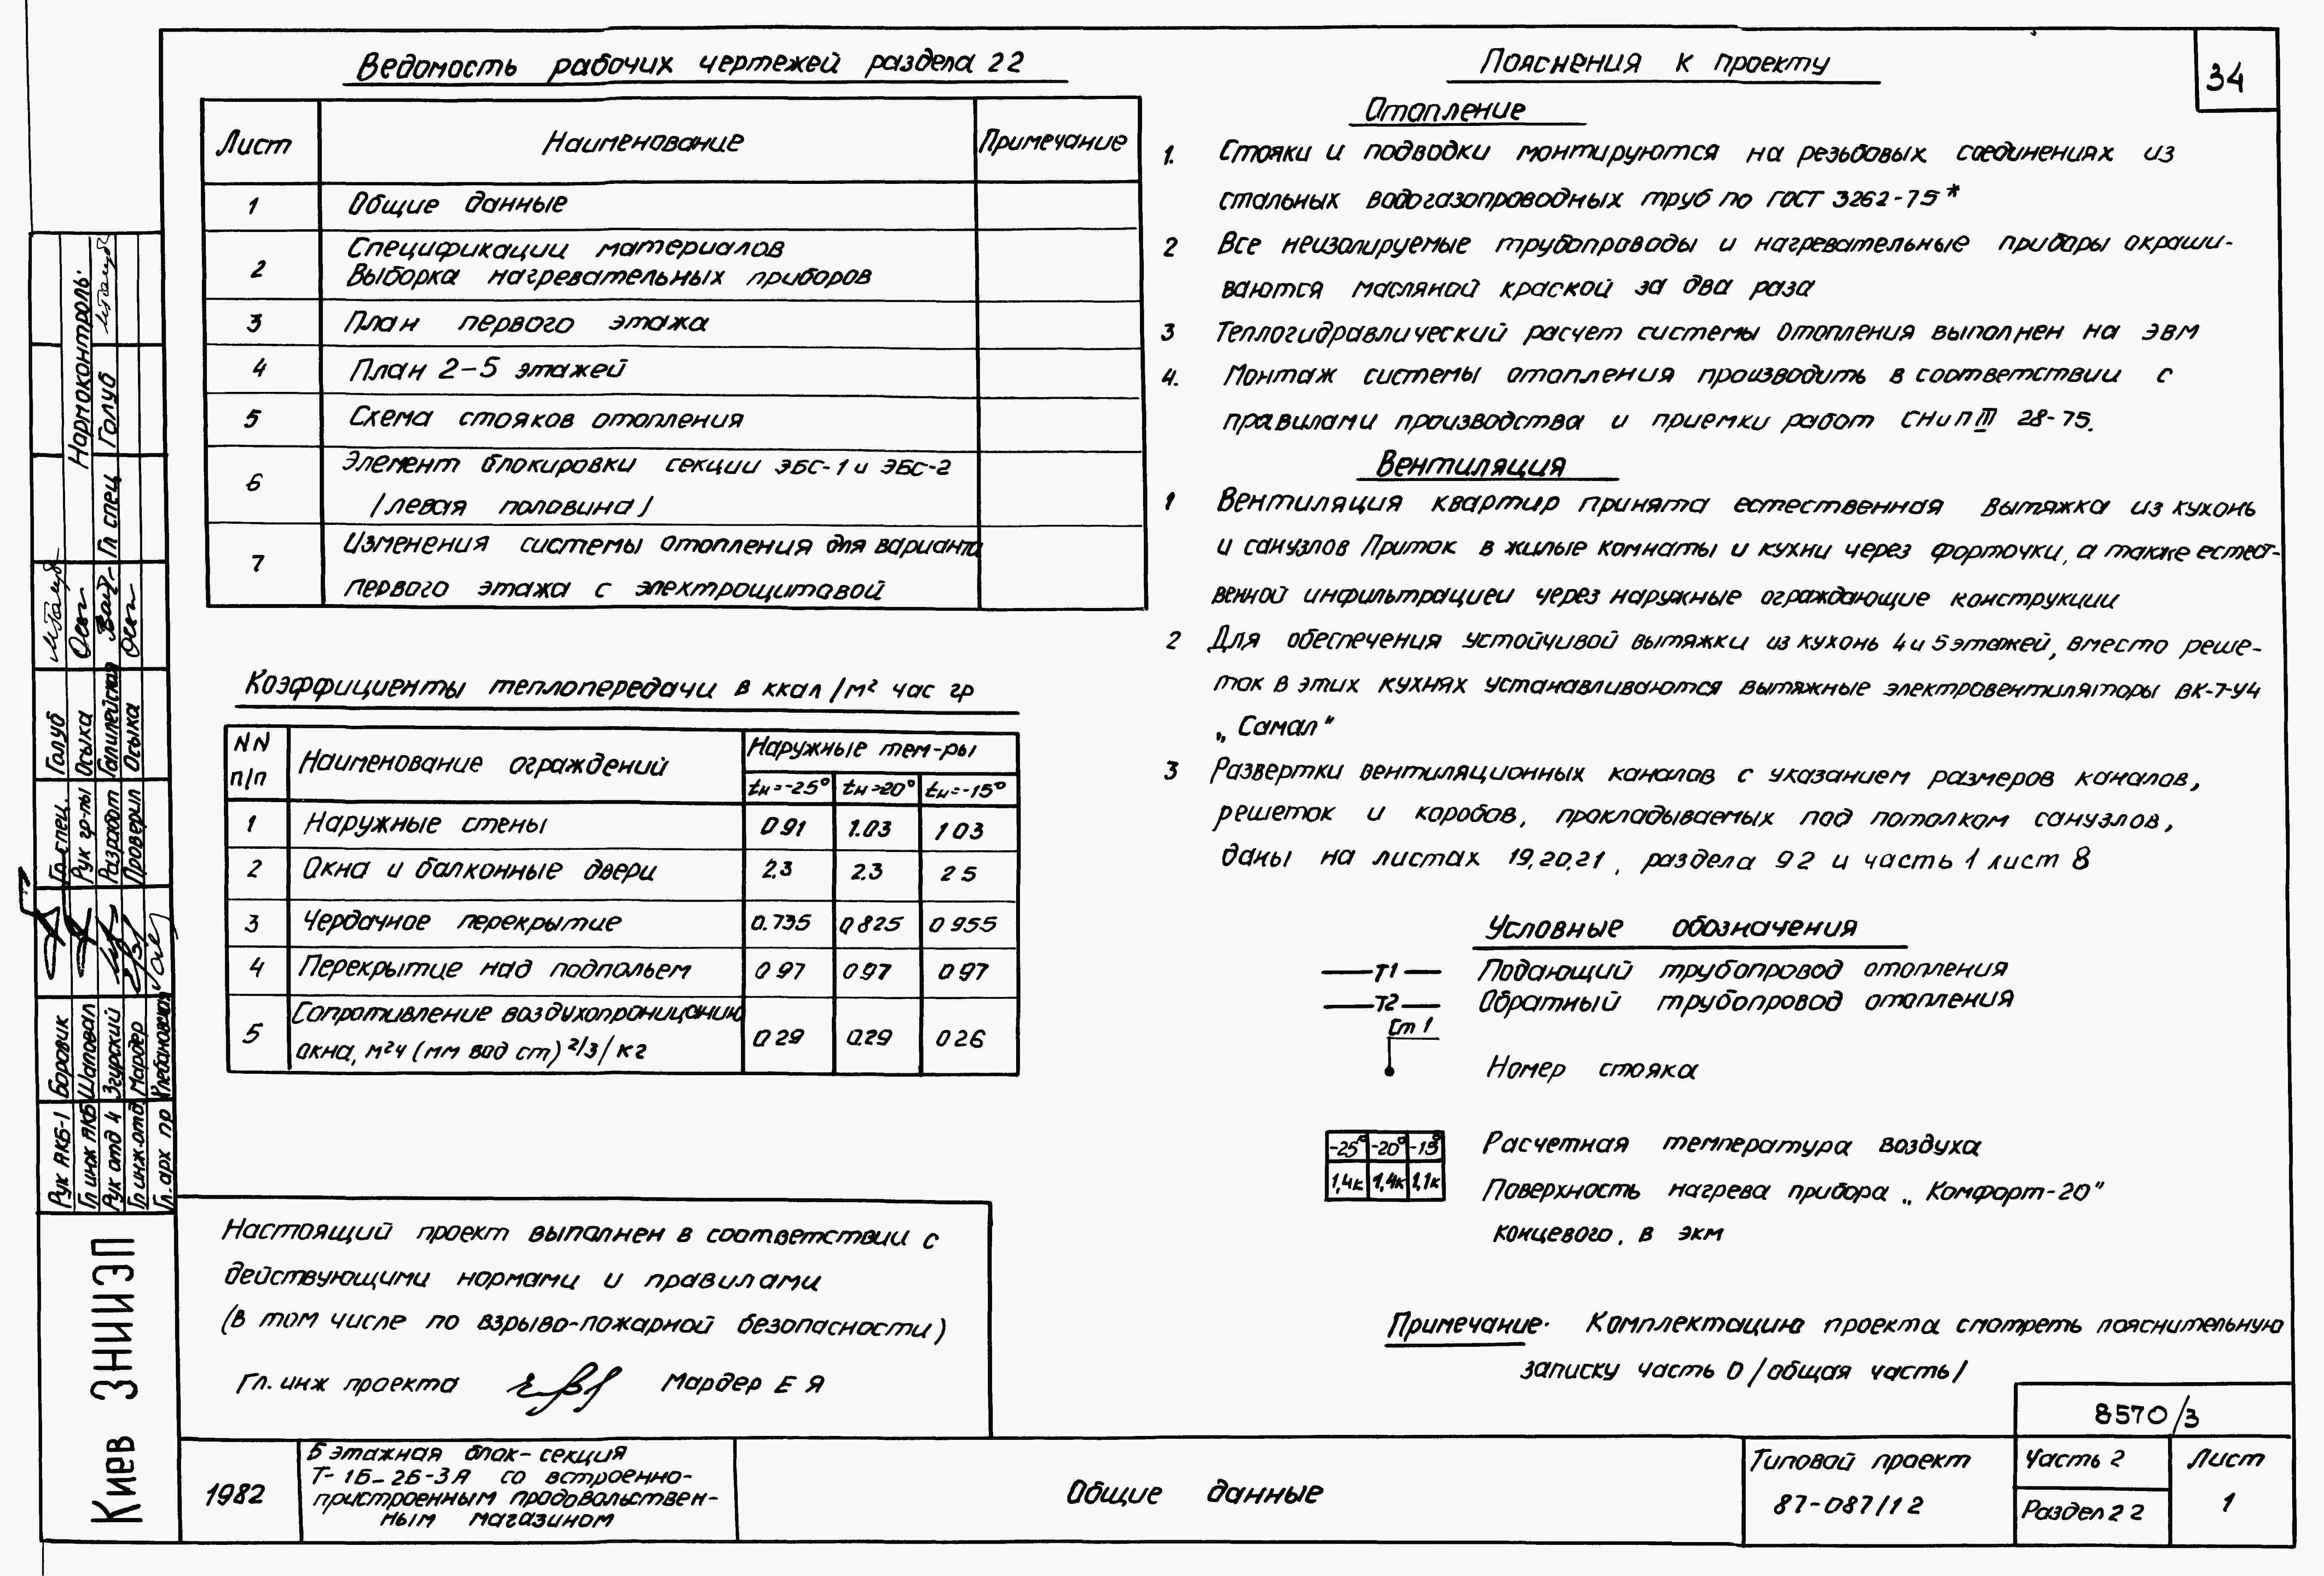 Ведомость рабочих чертежей раздела 22
Лист Наименование Примечание
1 Общие данные
2 Спецификации материалов
Выборка нагревательных приборов
3 План первого этажа
4 План 2-5 этажей
5 Схема стояков отопления
6 Элемент блокировки секции ЭБС-1 и ЭБС-2
/левая половина/
7 Изменения системы отопления для варианта
первого этажа с электрощитовой
Коэффициенты теплопередачи в ккал/м² час гр
NN п/п Наименование ограждений Наружные тем-ры
tн=-25° tн=-20° tн=-15°
1 Наружные стены 0 91 1.03 1 03
2 Окна и балконные двери 2.3 2.3 2 5
3 Чердачное перекрытие 0.735 0 825 0 955
4 Перекрытие над подпольем 0 97 0.97 0 97
5 Сопротивление воздухопроницанию
окна, м²ч (мм вод ст) 2/3/кг 0 29 0.29 0 26
Настоящий проект выполнен в соответствии с
действующими нормами и правилами
(в том числе по взрыво-пожарной безопасности)
Гл. инж проекта Мардер Е Я
Пояснения к проекту
34
Отопление
1. Стояки и подводки монтируются на резьбовых соединениях из
стальных водогазопроводных труб по ГОСТ 3262-75*
2 Все неизолируемые трубопроводы и нагревательные приборы окраши-
ваются масляной краской за два раза
3 Теплогидравлический расчет системы отопления выполнен на ЭВМ
4. Монтаж системы отопления производить в соответствии с
правилами производства и приемки работ СНиП III 28-75.
Вентиляция
1 Вентиляция квартир принята естественная Вытяжка из кухонь
и санузлов Приток в жилые комнаты и кухни через форточки, а также естест-
венной инфильтрацией через наружные ограждающие конструкции
2 Для обеспечения устойчивой вытяжки из кухонь 4 и 5 этажей, вместо реше-
ток в этих кухнях устанавливаются вытяжные электровентиляторы ВК-7-У4
„Самал"
3 Развертки вентиляционных каналов с указанием размеров каналов,
решеток и коробов, прокладываемых под потолком санузлов,
даны на листах 19,20,21, раздела 92 и часть 1 лист 8
Условные обозначения
Т1 Подающий трубопровод отопления
Т2 Обратный трубопровод отопления
Ст 1
Номер стояка
-25° -20° -15° Расчетная температура воздуха
1,4к 1,4к 1,1к Поверхность нагрева прибора „Комфорт-20"
концевого, в экм
Примечание. Комплектацию проекта смотреть пояснительную
записку часть 0 /общая часть/
8570/3
1982
5 этажная блок-секция
Т-1Б-2Б-3А со встроенно-
пристроенным продовольствен-
ным магазином
Общие данные
Типовой проект
87-087/1 2
Часть 2
Раздел 2 2
Лист
1
Киев ЗНИИЭП
Рук АКБ-1 Боровик Гл спец. Голуб
Гл инж АКБ Шаповал Рук гр-пы Осыка Нормоконтроль
Рук отд 4 Згурский Разработ Галилейская Гл спец Голуб
Гл инж.отд Мардер Проверил Осыка
Гл. арх пр Клебановская